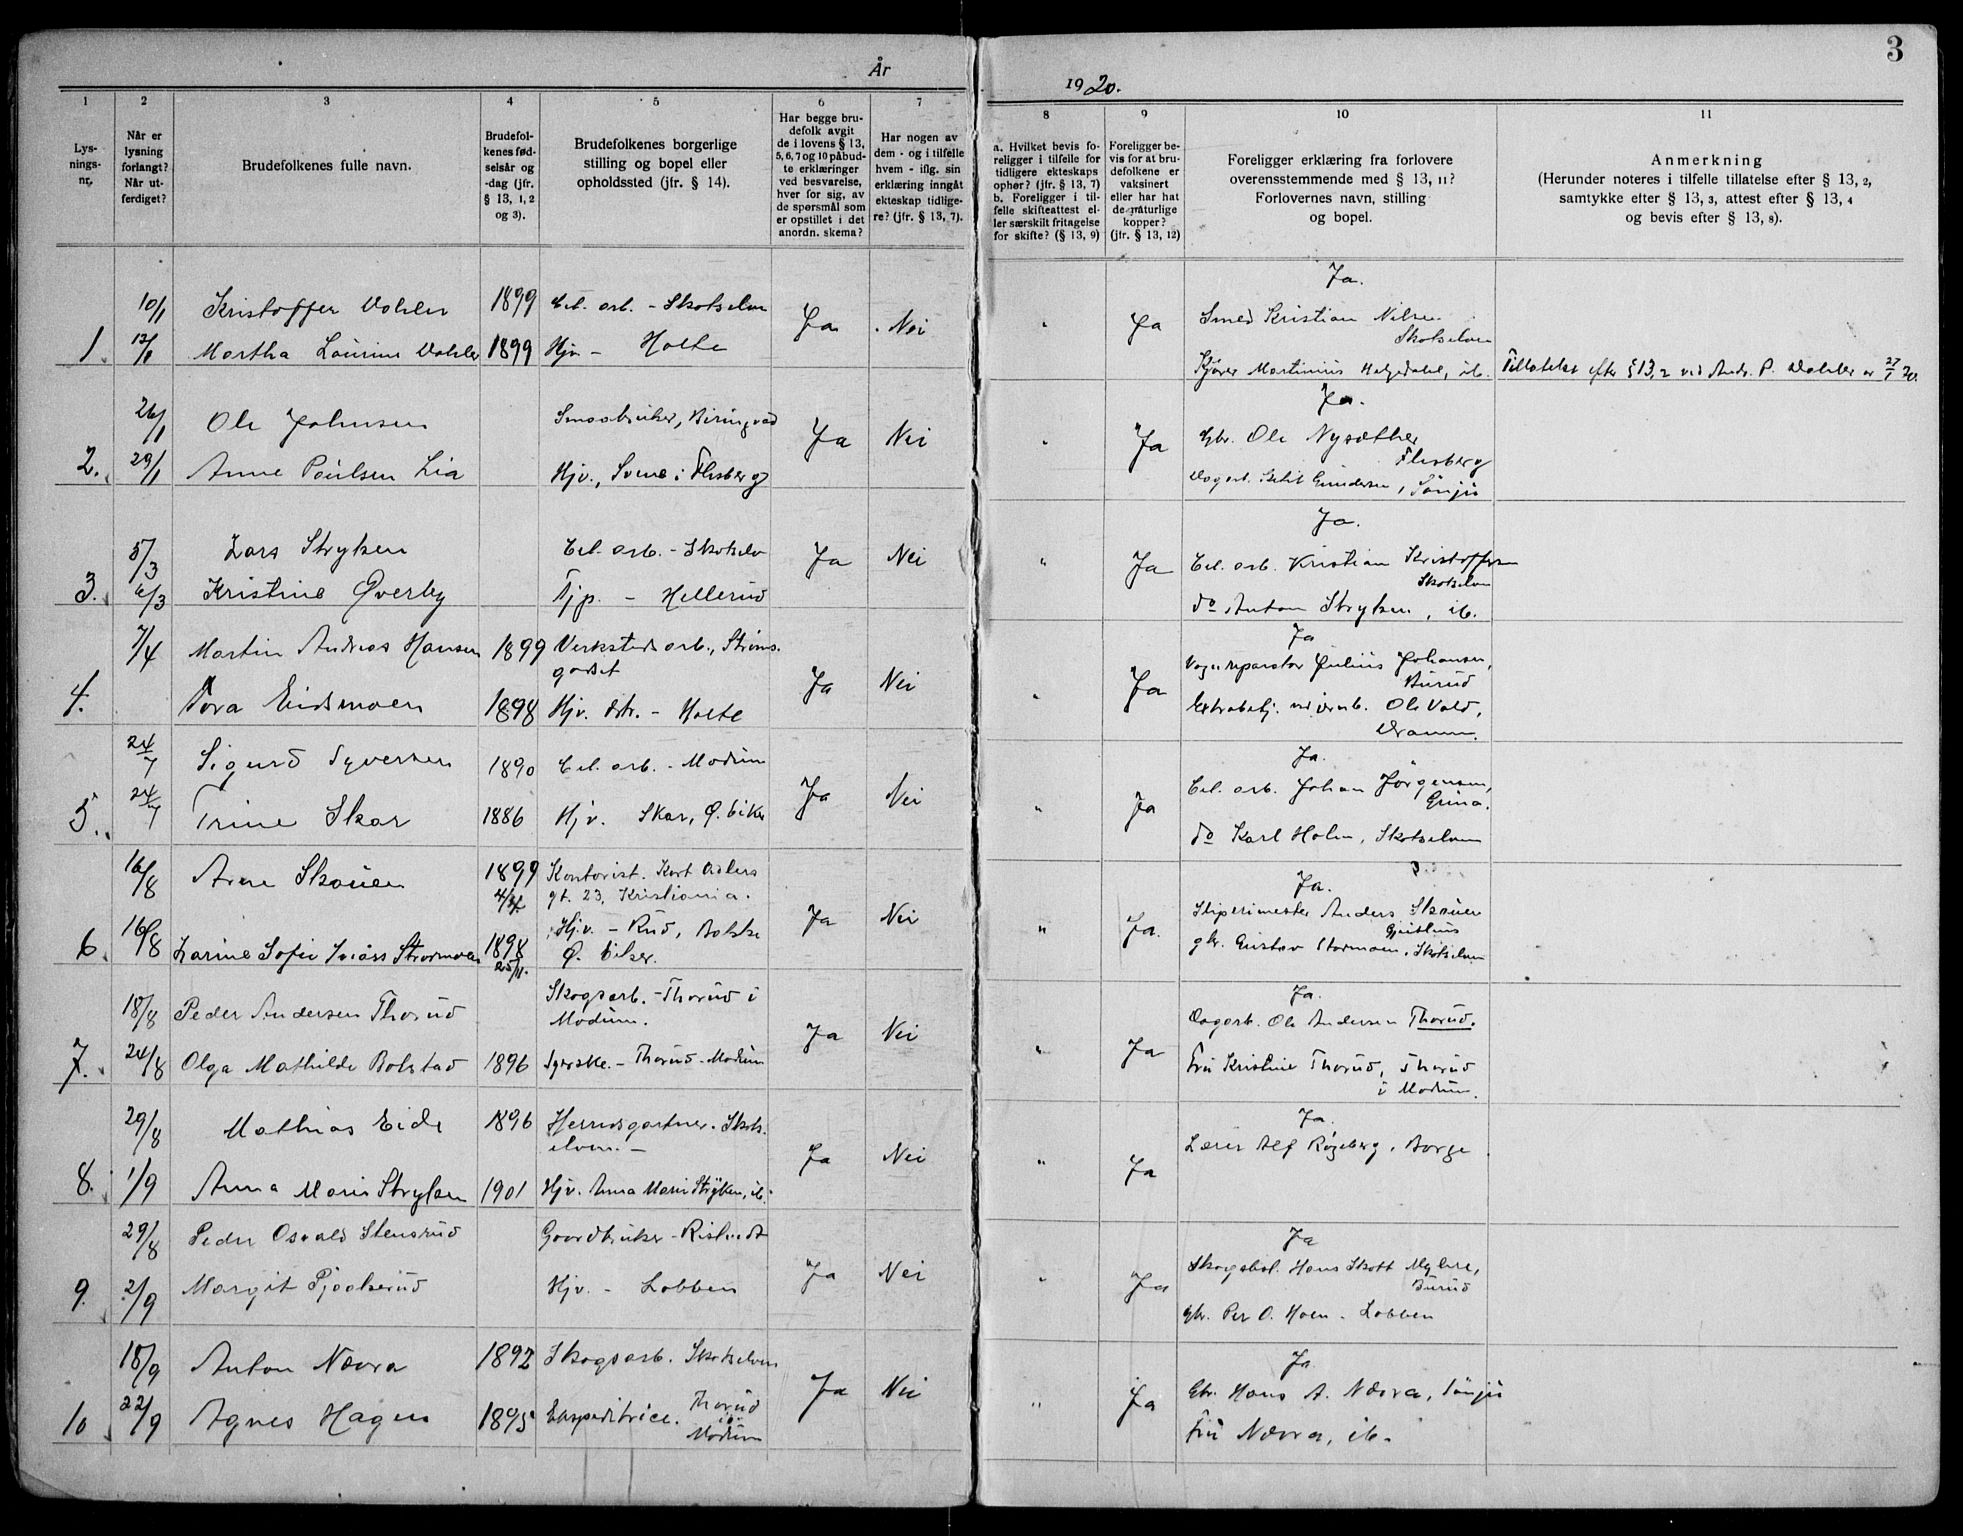 År 1920.
3
1 2 3 4 5 6 7 8 9 10 11
Lysningsnr.
Når er lysning forlangt? Når utferdiget?
Brudefolkenes fulle navn.
Brudefolkenes fødselsår og -dag (jfr. § 13, 1, 2 og 3).
Brudefolkenes borgerlige stilling og bopel eller opholdssted (jfr. § 14).
Har begge brudefolk avgit de i lovens § 13, 5, 6, 7 og 10 påbudte erklæringer ved besvarelse, hver for sig, av de spørsmål som er opstillet i det anordn. skema?
Har nogen av dem - og i tilfelle hvem - iflg. sin erklæring inngått ekteskap tidligere? (jfr. § 13, 7).
a. Hvilket bevis foreligger i tilfelle for tidligere ekteskaps ophør? (jfr. § 13, 7)
b. Foreligger i tilfelle skifteattest eller særskilt fritagelse for skifte? (§ 13, 9)
Foreligger bevis for at brudefolkene er vaksinert eller har hat de naturlige kopper? (jfr. § 13, 12)
Foreligger erklæring fra forlovere overensstemmende med § 13, 11? Forlovernes navn, stilling og bopel.
Anmerkning
(Herunder noteres i tilfelle tillatelse efter § 13, 2, samtykke efter § 13, 3, attest efter § 13, 4 og bevis efter § 13, 8).
Ja.
10/1 Kristoffer Dahler 1899 Cel. arb. - Skotselven Ja Nei " Ja Smed Kristian Nilsen
Skotselven
1. 12/1 Martha Laurine Dahler 1899 Hjv. - Holte Kjører Martinius Helgedahl, ib. Tillatelse efter § 13, 2 ved Andr. P. Dahler av 27/1 20.
Ja.
26/1 Ole Johnsen Smaabruker, Ja Nei " Ja Gbr. Ole Nysæther
Flesberg
2. 29/1 Anne Paulsen Lia Hjv., Svene i Flesberg Dagarb. Gundersen,
Ja.
5/3 Lars Stryken Cel. arb. - Skotselv Ja Nei " Ja Cel. arb. Kristian Kristoffersen
Skotselven
3. 6/3 Kristine Øverby Tjp. - Hellerud do Anton Stryken, ib.
Ja
7/4 Martin Andreas Hansen 1899 Verkstedsarb., Strømsgodset Ja Nei " Ja Vognreparatør Julius Johansen,
Burud
4. Tora Eidsmoen 1898 Hjv. dtr. - Holte Ole Vold,
Dramm.
Ja.
24/7 Sigurd Syversen 1890 Cel. arb. - Modum Ja Nei " Ja Cel. arb. Johan Jørgensen,
5. 24/7 Trine Skar 1886 Hjv. Skar, Ø. Eiker do Karl Holm, Skotselven
Ja.
16/8 Arne Skauen 1899 Kontorist. Kort Adlers
gt. 23, Kristiania. Ja Nei " Ja. Sliperimester Anders Skauen
Geithus
6. 16/8 Karine Sofie Stormoen 1898 25/11. Hjv. - Rud,
Ø. Eiker. gbr. Gustav Stormoen, Skotselven
Ja.
18/8 Peder Andersen Thorud Skogsarb. - Thorud i
Modum. Ja Nei " Ja Dagarb. Ole Andersen Thorud.
7. 24/8 Olga Mathilde Bolstad 1896 Syerske. - Thorud - Modum Fru Kristine Thorud, Thorud
i Modum.
Ja.
29/8 Mathias Eide 1896 Herredsgartner. Skotselven. - Ja Nei " Ja Lærer Alf Røgeberg, Borge
8. 1/9 Anna Marie Stryken 1901 Hjv. Anna Marie Stryken, ib.
Ja
29/8 Peder Osvald Stensrud Gaardbruker - Ja Nei " Ja Skogsbest. Hans Skott Myhre,
Burud
9. 2/9 Margit Hjv. - Lobben gbr. Per O. Hoen - Lobben
Ja.
18/9 Anton Nævra 1892 Skogsarb. Skotselven Ja Nei " Ja Gbr. Hans A. Nævra,
10. 22/9 Agnes Hagen 1895 Ekspeditrice. Thorud
i
Modum Fru Nævra, ib.